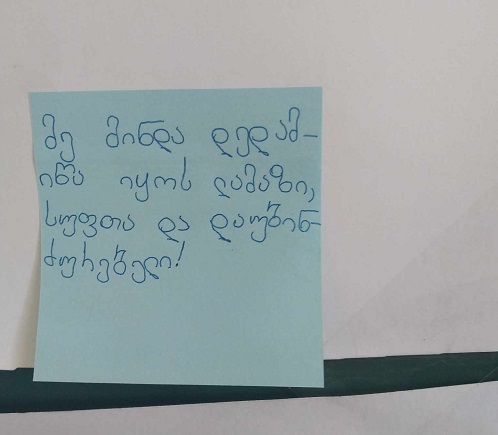 მე მინდა დედამ-
იწა იყოს ლამაზი,
სუფთა და დაუბინ-
ძურებელი!